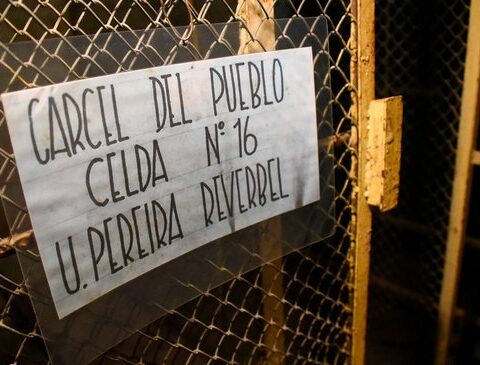 CARCEL DEL PUEBLO
CELDA Nº 16
U. PEREIRA REVERBEL